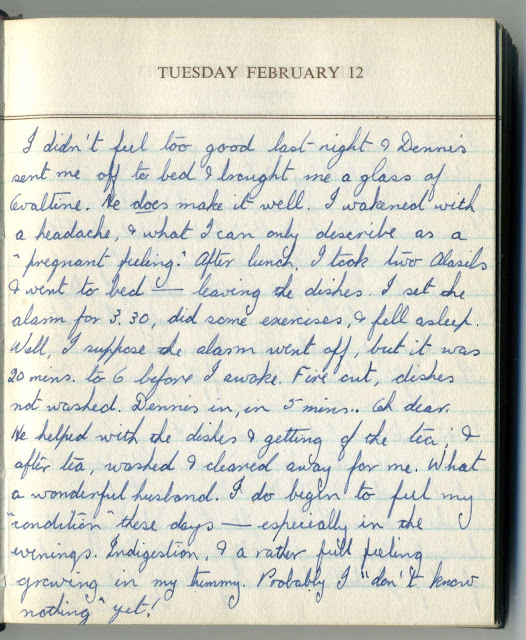 TUESDAY FEBRUARY 12
I didn't feel too good last night & Dennis
sent me off to bed & brought me a glass of
Ovaltine. He does make it well. I wakened with
a headache, & what I can only describe as a
"pregnant feeling." After lunch, I took two Alasils
& went to bed — leaving the dishes. I set the
alarm for 3.30, did some exercises, & fell asleep.
Well, I suppose the alarm went off, but it was
20 mins. to 6 before I awoke. Fire out, dishes
not washed. Dennis in, in 5 mins.. Oh dear.
He helped with the dishes & getting of the tea, &
after tea, washed & cleared away for me. What
a wonderful husband. I do begin to feel my
"condition" these days — especially in the
evenings. Indigestion, & a rather full feeling
growing in my tummy. Probably I "don't know
nothing" yet!